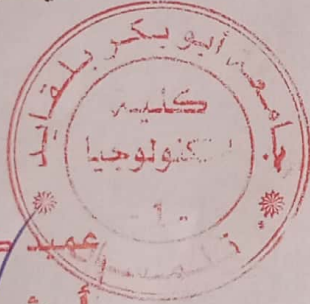 جامعة أبو بكر بلقايد
كلية
التكنولوجيا
- 1 -
تلمسان
عميد